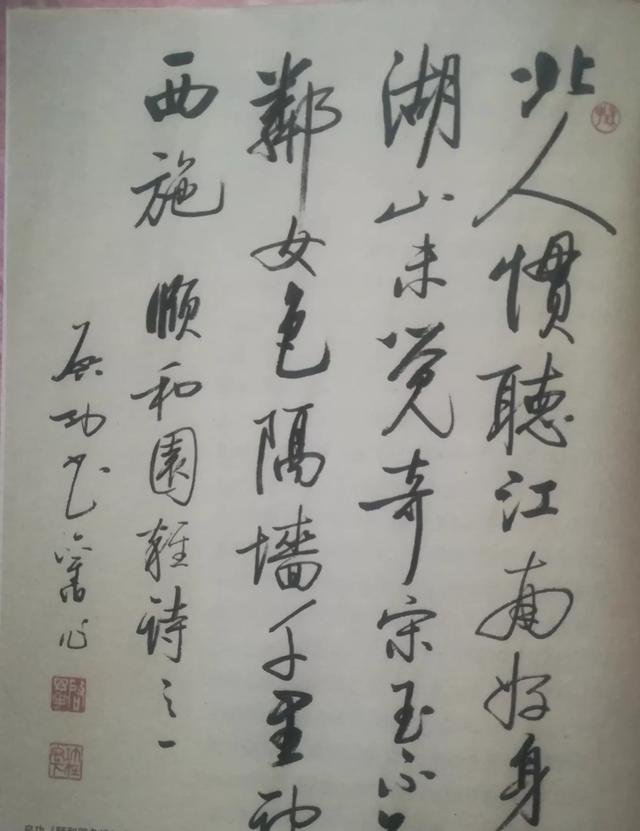 北人慣聽江南好身
湖山未覺奇宋玉不
鄰女色隔墻千里
西施 頤和園雜詩之一
启功书舊作